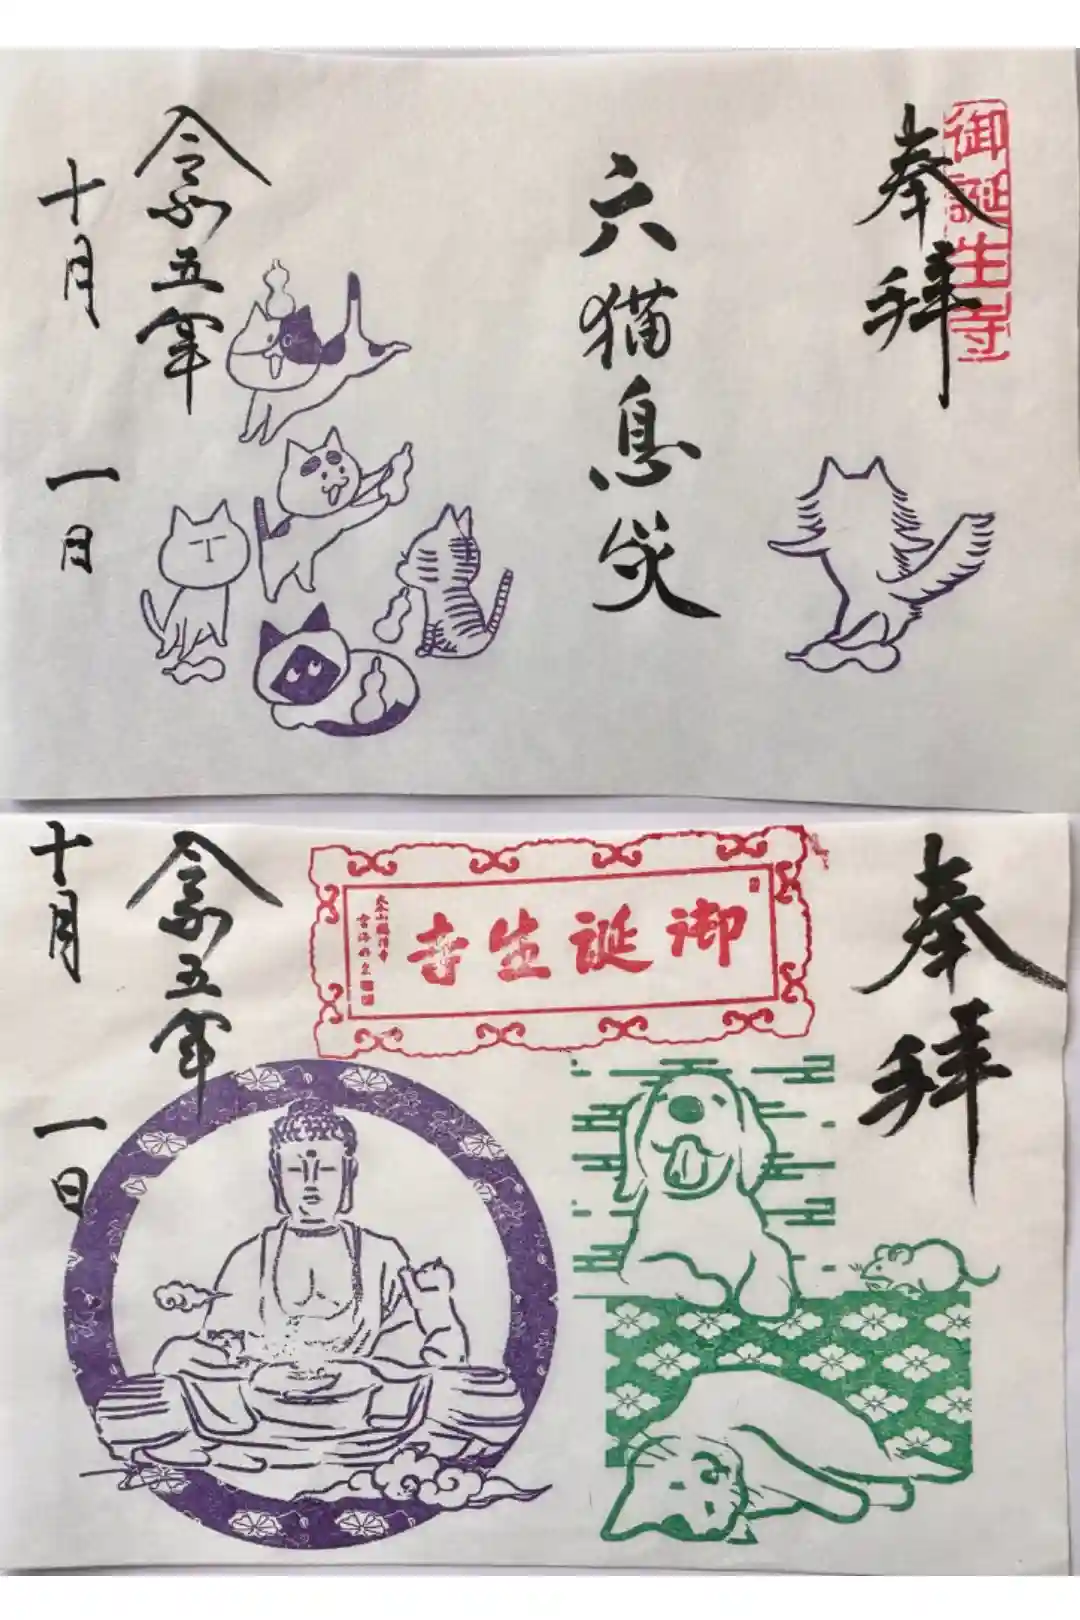 奉拝
御誕生寺
六猫息災
令和五年
十月一日
奉拝
御誕生寺
令和五年
十月一日